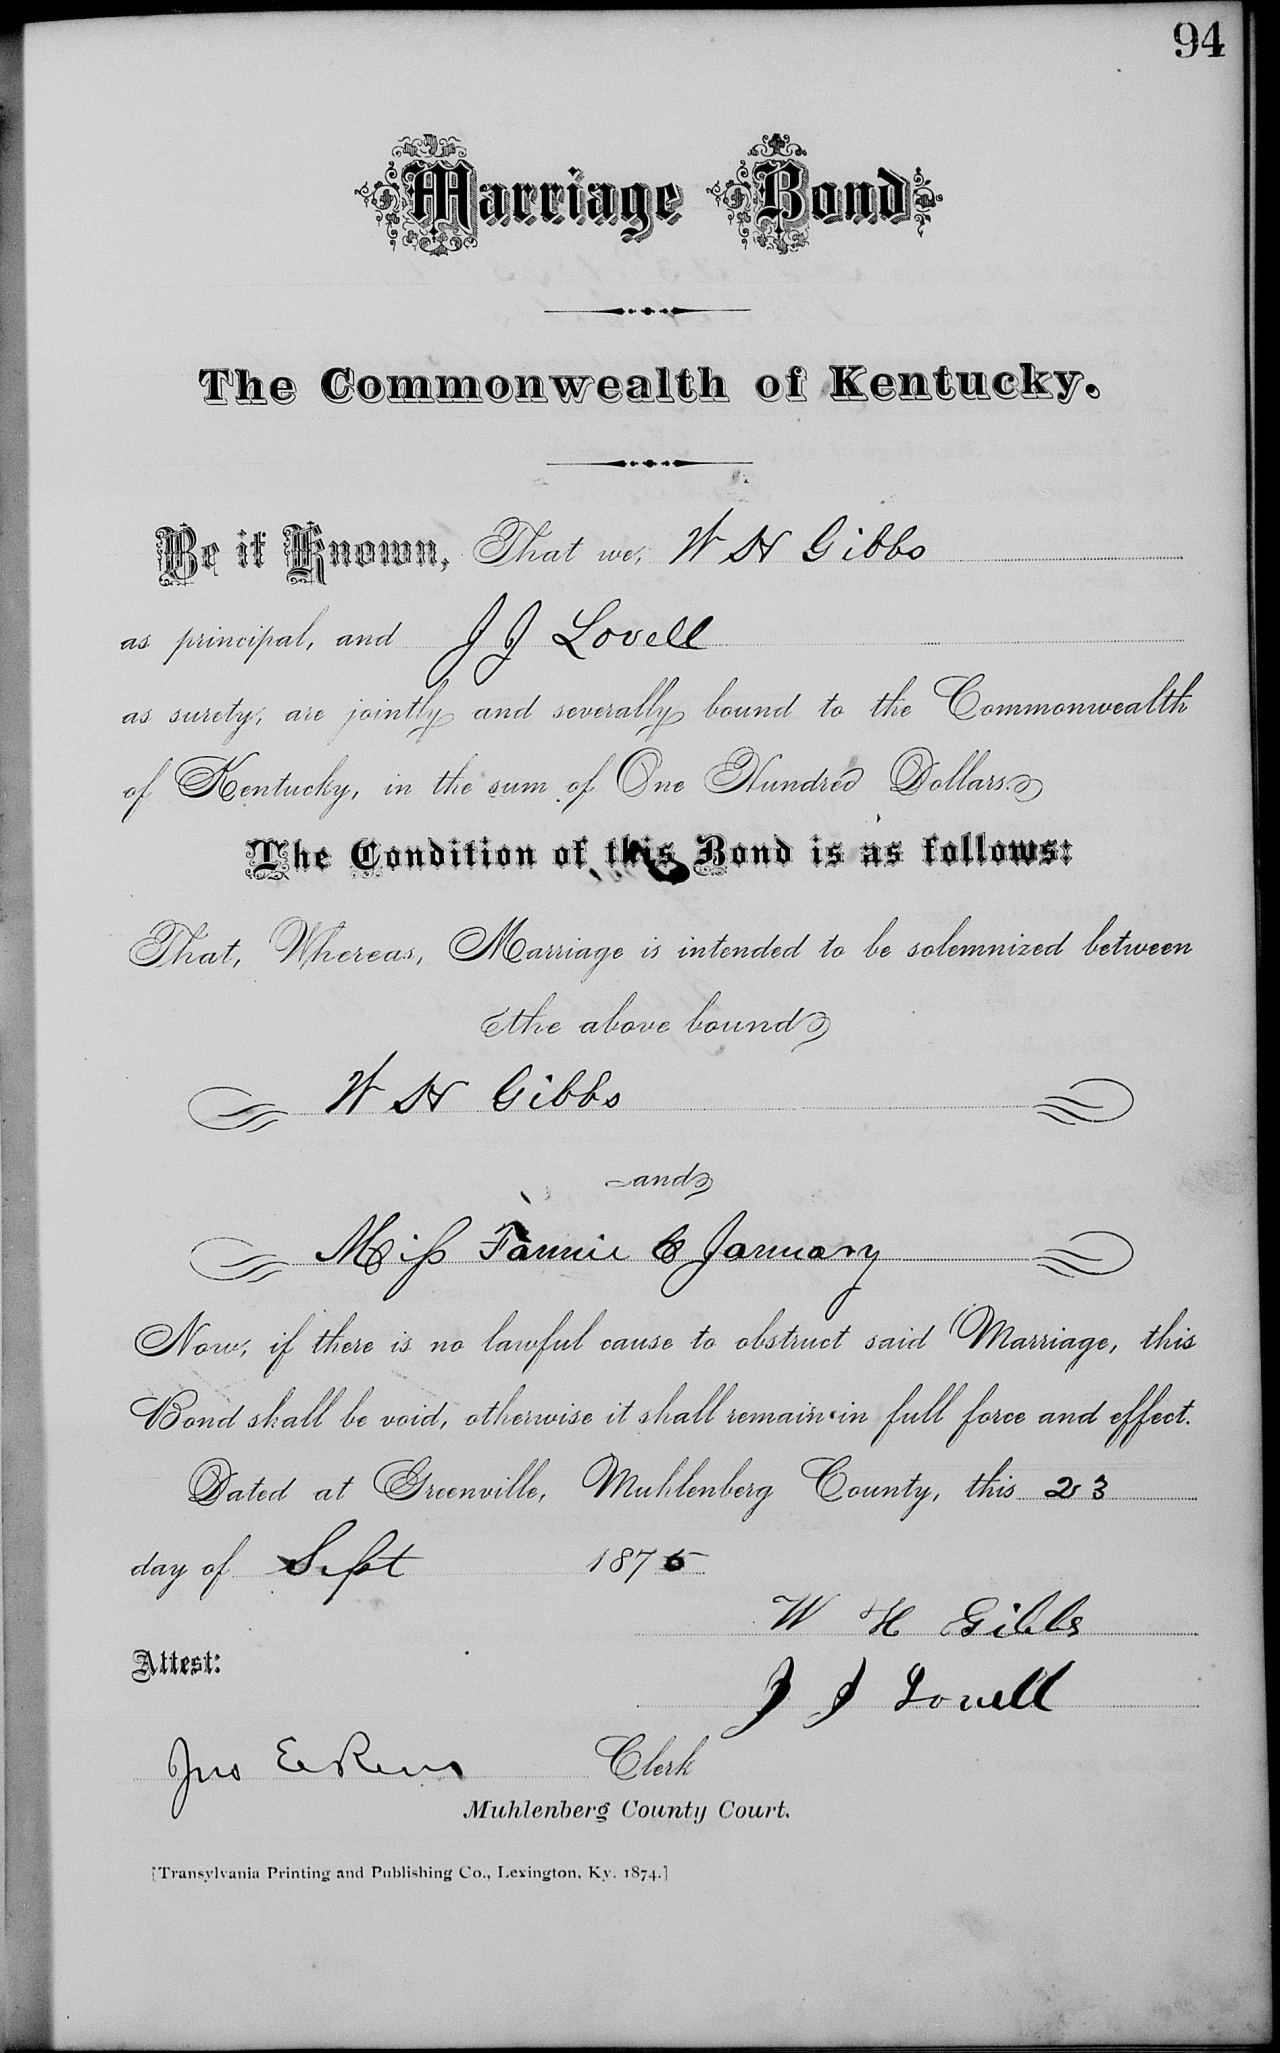 94
Marriage Bond
The Commonwealth of Kentucky.
Be it Known, That we, W H Gibbs
as principal, and J J Lovell
as surety, are jointly and severally bound to the Commonwealth
of Kentucky, in the sum of One Hundred Dollars.
The Condition of this Bond is as follows:
That, Whereas, Marriage is intended to be solemnized between
the above bound
W H Gibbs
and
Miss Fannie C January
Now, if there is no lawful cause to obstruct said Marriage, this
Bond shall be void, otherwise it shall remain in full force and effect.
Dated at Greenville, Muhlenberg County, this 23
day of Sept 1875
W H Gibbs
Attest:
J J Lovell
Jno Clerk
Muhlenberg County Court.
[Transylvania Printing and Publishing Co., Lexington, Ky. 1874.]